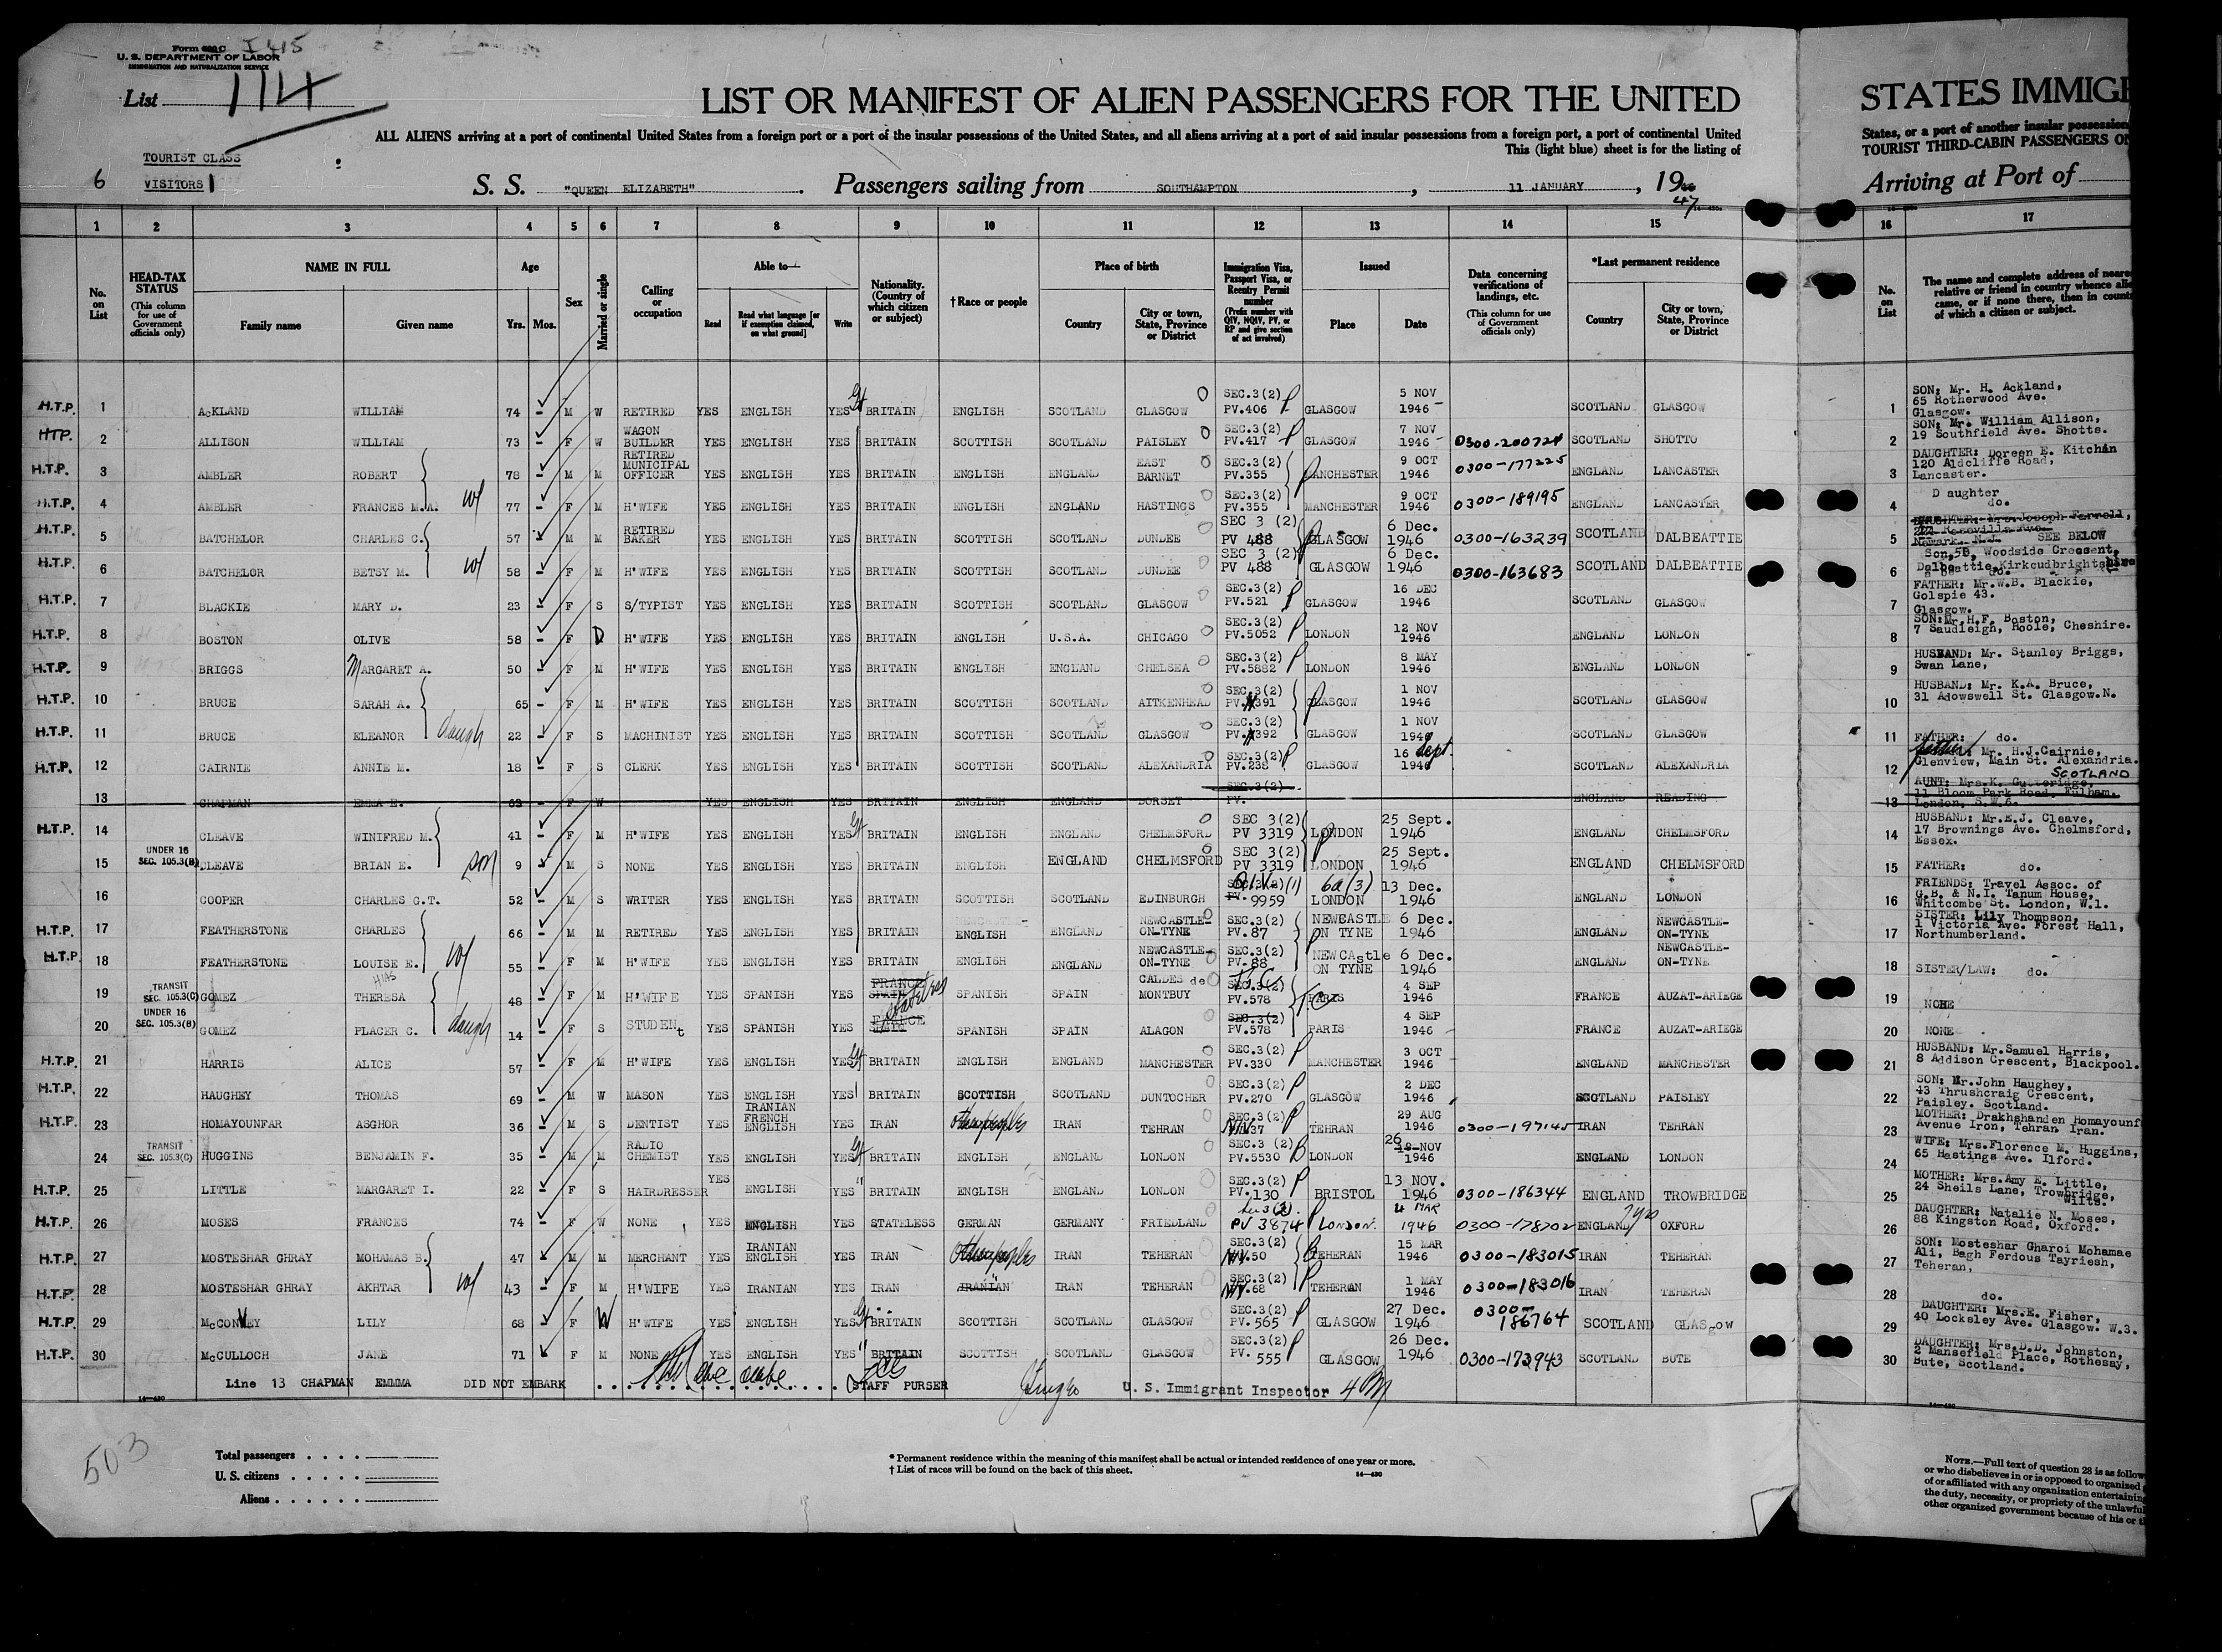 Form 630 C I 415
U. S. DEPARTMENT OF LABOR
IMMIGRATION AND NATURALIZATION SERVICE
List 114
LIST OR MANIFEST OF ALIEN PASSENGERS FOR THE UNITED
STATES IMMIG
ALL ALIENS arriving at a port of continental United States from a foreign port or a port of the insular possessions of the United States, and all aliens arriving at a port of said insular possessions from a foreign port, a port of continental United
States, or a port of another insular possession
This (light blue) sheet is for the listing of
TOURIST THIRD-CABIN PASSENGERS ON
TOURIST CLASS
6 VISITORS 1
S. S. "QUEEN ELIZABETH". Passengers sailing from SOUTHAMPTON, 11 JANUARY, 19 47
Arriving at Port of
1 2 3 4 5 6 7 8 9 10 11 12 13 14 15 16 17
No. on List
HEAD-TAX STATUS (This column for use of Government officials only)
NAME IN FULL Family name Given name
Age Yrs. Mos.
Sex
Married or single
Calling or occupation
Able to— Read Read what language [or if exemption claimed, on what ground] Write
Nationality. (Country of which citizen or subject)
†Race or people
Place of birth Country City or town, State, Province or District
Immigration Visa, Passport Visa, or Reentry Permit number (Prefix number with QIV, NQIV, PV, or RP and give section of act involved)
Issued Place Date
Data concerning verifications of landings, etc. (This column for use of Government officials only)
*Last permanent residence Country City or town, State, Province or District
No. on List
The name and complete address of neare
relative or friend in country whence alie
came, or if none there, then in count
of which a citizen or subject.
H.T.P. 1 ACKLAND WILLIAM 74 - M W RETIRED YES ENGLISH YES BRITAIN ENGLISH SCOTLAND GLASGOW SEC.3(2) PV.406 GLASGOW 5 NOV 1946 SCOTLAND GLASGOW 1 SON: Mr. H. Ackland, 65 Rotherwood Ave. Glasgow.
HTP. 2 ALLISON WILLIAM 73 - F W WAGON BUILDER YES ENGLISH YES BRITAIN SCOTTISH SCOTLAND PAISLEY SEC.3(2) PV.417 GLASGOW 7 NOV 1946 0300-200724 SCOTLAND SHOTTO 2 SON: Mr. William Allison, 19 Southfield Ave. Shotts.
H.T.P. 3 AMBLER ROBERT 78 - M M RETIRED MUNICIPAL OFFICER YES ENGLISH YES BRITAIN ENGLISH ENGLAND EAST BARNET SEC.3(2) PV.355 MANCHESTER 9 OCT 1946 0300-177225 ENGLAND LANCASTER 3 DAUGHTER: Doreen E. Kitchin 120 Aldcliffe Road, Lancaster.
H.T.P. 4 AMBLER FRANCES M.A. wf 77 - F M H'WIFE YES ENGLISH YES BRITAIN ENGLISH ENGLAND HASTINGS SEC.3(2) PV.355 MANCHESTER 9 OCT 1946 0300-189195 ENGLAND LANCASTER 4 D aughter do.
H.T.P. 5 BATCHELOR CHARLES C. 57 - M M RETIRED BAKER YES ENGLISH YES BRITAIN SCOTTISH SCOTLAND DUNDEE SEC 3 (2) PV 488 GLASGOW 6 Dec. 1946 0300-163239 SCOTLAND DALBEATTIE 5 DAUGHTER: Mrs. Joseph Farrell, Newark. N.J. SEE BELOW
H.T.P. 6 BATCHELOR BETSY M. wf 58 - F M H'WIFE YES ENGLISH YES BRITAIN SCOTTISH SCOTLAND DUNDEE SEC 3 (2) PV 488 GLASGOW 6 Dec. 1946 0300-163683 SCOTLAND DALBEATTIE 6 Son, 5B, Woodside Crescent, Dalbeattie, Kirkcudbrightshire
H.T.P. 7 BLACKIE MARY D. 23 - F S S/TYPIST YES ENGLISH YES BRITAIN SCOTTISH SCOTLAND GLASGOW SEC.3(2) PV.521 GLASGOW 16 DEC 1946 SCOTLAND GLASGOW 7 FATHER: Mr.W.B. Blackie, Golspie 43. Glasgow.
H.T.P. 8 BOSTON OLIVE 58 - F D H'WIFE YES ENGLISH YES BRITAIN ENGLISH U.S.A. CHICAGO SEC.3(2) PV.5052 LONDON 12 NOV 1946 ENGLAND LONDON 8 SON: Mr. H.F. Boston, 7 Saudleigh, Hoole, Cheshire.
H.T.P. 9 BRIGGS MARGARET A. 50 - F M H'WIFE YES ENGLISH YES BRITAIN ENGLISH ENGLAND CHELSEA SEC.3(2) PV.5882 LONDON 8 MAY 1946 ENGLAND LONDON 9 HUSBAND: Mr. Stanley Briggs, Swan Lane,
H.T.P. 10 BRUCE SARAH A. 65 - F M H'WIFE YES ENGLISH YES BRITAIN SCOTTISH SCOTLAND AITKENHEAD SEC.3(2) PV. 391 GLASGOW 1 NOV 1946 SCOTLAND GLASGOW 10 HUSBAND: Mr. K.A. Bruce, 31 Adowswell St. Glasgow.N.
H.T.P. 11 BRUCE ELEANOR daugh 22 - F S MACHINIST YES ENGLISH YES BRITAIN SCOTTISH SCOTLAND GLASGOW SEC.3(2) PV. 392 GLASGOW 1 NOV 1946 SCOTLAND GLASGOW 11 FATHER: do.
H.T.P. 12 CAIRNIE ANNIE M. 18 - F S CLERK YES ENGLISH YES BRITAIN SCOTTISH SCOTLAND ALEXANDRIA SEC.3(2) PV.238 GLASGOW 16 Sept. 1946 SCOTLAND ALEXANDRIA 12 father Mr. H.J.Cairnie, Glenview, Main St. Alexandria. SCOTLAND
13 CHAPMAN EMMA E. 63 - F W YES ENGLISH YES BRITAIN ENGLISH ENGLAND DORSET SEC.3(2) PV. ENGLAND READING 13 AUNT: Mrs.K. Gutteridge, 11 Bloom Park Road, Fulham. London, S.W.6.
H.T.P. 14 CLEAVE WINIFRED M. 41 - F M H'WIFE YES ENGLISH YES BRITAIN ENGLISH ENGLAND CHELMSFORD SEC 3(2) PV 3319 LONDON 25 Sept. 1946 ENGLAND CHELMSFORD 14 HUSBAND: Mr.E.J. Cleave, 17 Brownings Ave. Chelmsford, Essex.
15 UNDER 16 SEC. 105.3(B) CLEAVE BRIAN E. son 9 M S NONE YES ENGLISH YES BRITAIN ENGLISH ENGLAND CHELMSFORD SEC 3(2) PV 3319 LONDON 25 Sept. 1946 ENGLAND CHELMSFORD 15 FATHER: do.
16 COOPER CHARLES G.T. 52 - M S WRITER YES ENGLISH YES BRITAIN SCOTTISH SCOTLAND EDINBURGH SEC.3(2) (1) PV. 9959 6a(3) LONDON 13 Dec. 1946 ENGLAND LONDON 16 FRIENDS: Travel Assoc. of G.B. & N.I. Tanum House, Whitcombe St. London, W.1.
H.T.P. 17 FEATHERSTONE CHARLES 66 - M M RETIRED YES ENGLISH YES BRITAIN ENGLISH ENGLAND NEWCASTLE-ON-TYNE SEC.3(2) PV.87 NEWCASTLE ON TYNE 6 Dec. 1946 ENGLAND NEWCASTLE-ON-TYNE 17 SISTER: Lily Thompson, 1 Victoria Ave. Forest Hall, Northumberland.
H.T.P. 18 FEATHERSTONE LOUISE E. wf 55 - F M H'WIFE YES ENGLISH YES BRITAIN ENGLISH ENGLAND NEWCASTLE-ON-TYNE SEC.3(2) PV.88 NEWCAstle ON TYNE 6 Dec. 1946 ENGLAND NEWCASTLE-ON-TYNE 18 SISTER/LAW: do.
19 TRANSIT SEC. 105.3(C) GOMEZ THERESA HIAS 48 - F M H'WIFE YES SPANISH YES FRANCE SPAIN stateless SPANISH SPAIN CALDES de MONTBUY SEC.3(2) PV.578 PARIS 4 SEP 1946 FRANCE AUZAT-ARIEGE 19 NONE
20 UNDER 16 SEC. 105.3(B) GOMEZ PLACER C. daugh 14 - F S STUDENt YES SPANISH YES FRANCE SPANISH SPAIN ALAGON SEC.3(2) PV.578 PARIS 4 SEP 1946 FRANCE AUZAT-ARIEGE 20 NONE
H.T.P. 21 HARRIS ALICE 57 - F M H'WIFE YES ENGLISH YES BRITAIN ENGLISH ENGLAND MANCHESTER SEC.3(2) PV.330 MANCHESTER 3 OCT 1946 ENGLAND MANCHESTER 21 HUSBAND: Mr.Samuel Harris, 8 Addison Crescent, Blackpool.
H.T.P. 22 HAUGHEY THOMAS 69 - M W MASON YES ENGLISH YES BRITAIN SCOTTISH SCOTLAND DUNTOCHER SEC.3(2) PV.270 GLASGOW 2 DEC 1946 SCOTLAND PAISLEY 22 SON: Mr.John Haughey, 43 Thrushcraig Crescent, Paisley. Scotland.
H.T.P. 23 HOMAYOUNFAR ASGHOR 36 - M S DENTIST YES IRANIAN FRENCH ENGLISH YES IRAN Other peoples IRAN TEHRAN SEC.3(2) 37 TEHRAN 29 AUG 1946 0300-197145 IRAN TEHRAN 23 MOTHER: Drakhshanden Homayounf Avenue Iron, Tehran Iran.
24 TRANSIT SEC. 105.3(C) HUGGINS BENJAMIN F. 35 - M M RADIO CHEMIST YES ENGLISH YES BRITAIN ENGLISH ENGLAND LONDON SEC.3 (2) PV.5530 LONDON 26 NOV 1946 ENGLAND LONDON 24 WIFE: Mrs.Florence M. Huggins, 65 Hastings Ave. Ilford.
H.T.P. 25 LITTLE MARGARET I. 22 - F S HAIRDRESSER YES ENGLISH YES BRITAIN ENGLISH ENGLAND LONDON SEC.3(2) PV.130 BRISTOL 13 NOV. 1946 0300-186344 ENGLAND TROWBRIDGE 25 MOTHER: Mrs.Amy E. Little, 24 Sheils Lane, Trowbridge, Wilts.
H.T.P. 26 MOSES FRANCES 74 - F W NONE YES ENGLISH YES STATELESS GERMAN GERMANY FRIEDLAND Sec 3(2). PV 3874 LONDON. 4 MAR 1946 0300-178702 ENGLAND 7yrs OXFORD 26 DAUGHTER: Natalie N. Moses, 88 Kingston Road, Oxford.
H.T.P. 27 MOSTESHAR GHRAY MOHAMAS B. 47 - M M MERCHANT YES IRANIAN ENGLISH YES IRAN Other peoples IRAN TEHERAN SEC.3(2) 50 TEHERAN 15 MAR 1946 0300-183015 IRAN TEHERAN 27 SON: Mosteshar Gharoi Mohamae Ali, Bagh Ferdous Tayriesh, Teheran,
H.T.P. 28 MOSTESHAR GHRAY AKHTAR wf 43 - F M H'WIFE YES IRANIAN YES IRAN IRANIAN IRAN TEHERAN SEC.3(2) 68 TEHERAN 1 MAY 1946 0300-183016 IRAN TEHERAN 28 do.
H.T.P. 29 McCONVEY LILY 68 - F W H'WIFE YES ENGLISH YES BRITAIN SCOTTISH SCOTLAND GLASGOW SEC.3(2) PV.565 GLASGOW 27 Dec. 1946 0300-186764 SCOTLAND GLASgow 29 DAUGHTER: Mrs.E. Fisher, 40 Locksley Ave. Glasgow. W.3.
H.T.P. 30 McCULLOCH JANE 71 - F M NONE YES ENGLISH YES BRITAIN SCOTTISH SCOTLAND GLASGOW SEC.3(2) PV. 555 GLASGOW 26 Dec. 1946 0300-172943 SCOTLAND BUTE 30 DAUGHTER: Mrs.D.D. Johnston, 2 Mansefield Place, Rothesay, Bute, Scotland.
Line 13 CHAPMAN EMMA DID NOT EMBARK STAFF PURSER U. S. Immigrant Inspector
14—430
503
Total passengers
U. S. citizens
Aliens
* Permanent residence within the meaning of this manifest shall be actual or intended residence of one year or more.
† List of races will be found on the back of this sheet. 14—430
NOTE.—Full text of question 28 is as follow
or who disbelieves in or is opposed to organized
of or affiliated with any organization entertaining
the duty, necessity, or propriety of the unlawfu
other organized government because of his or